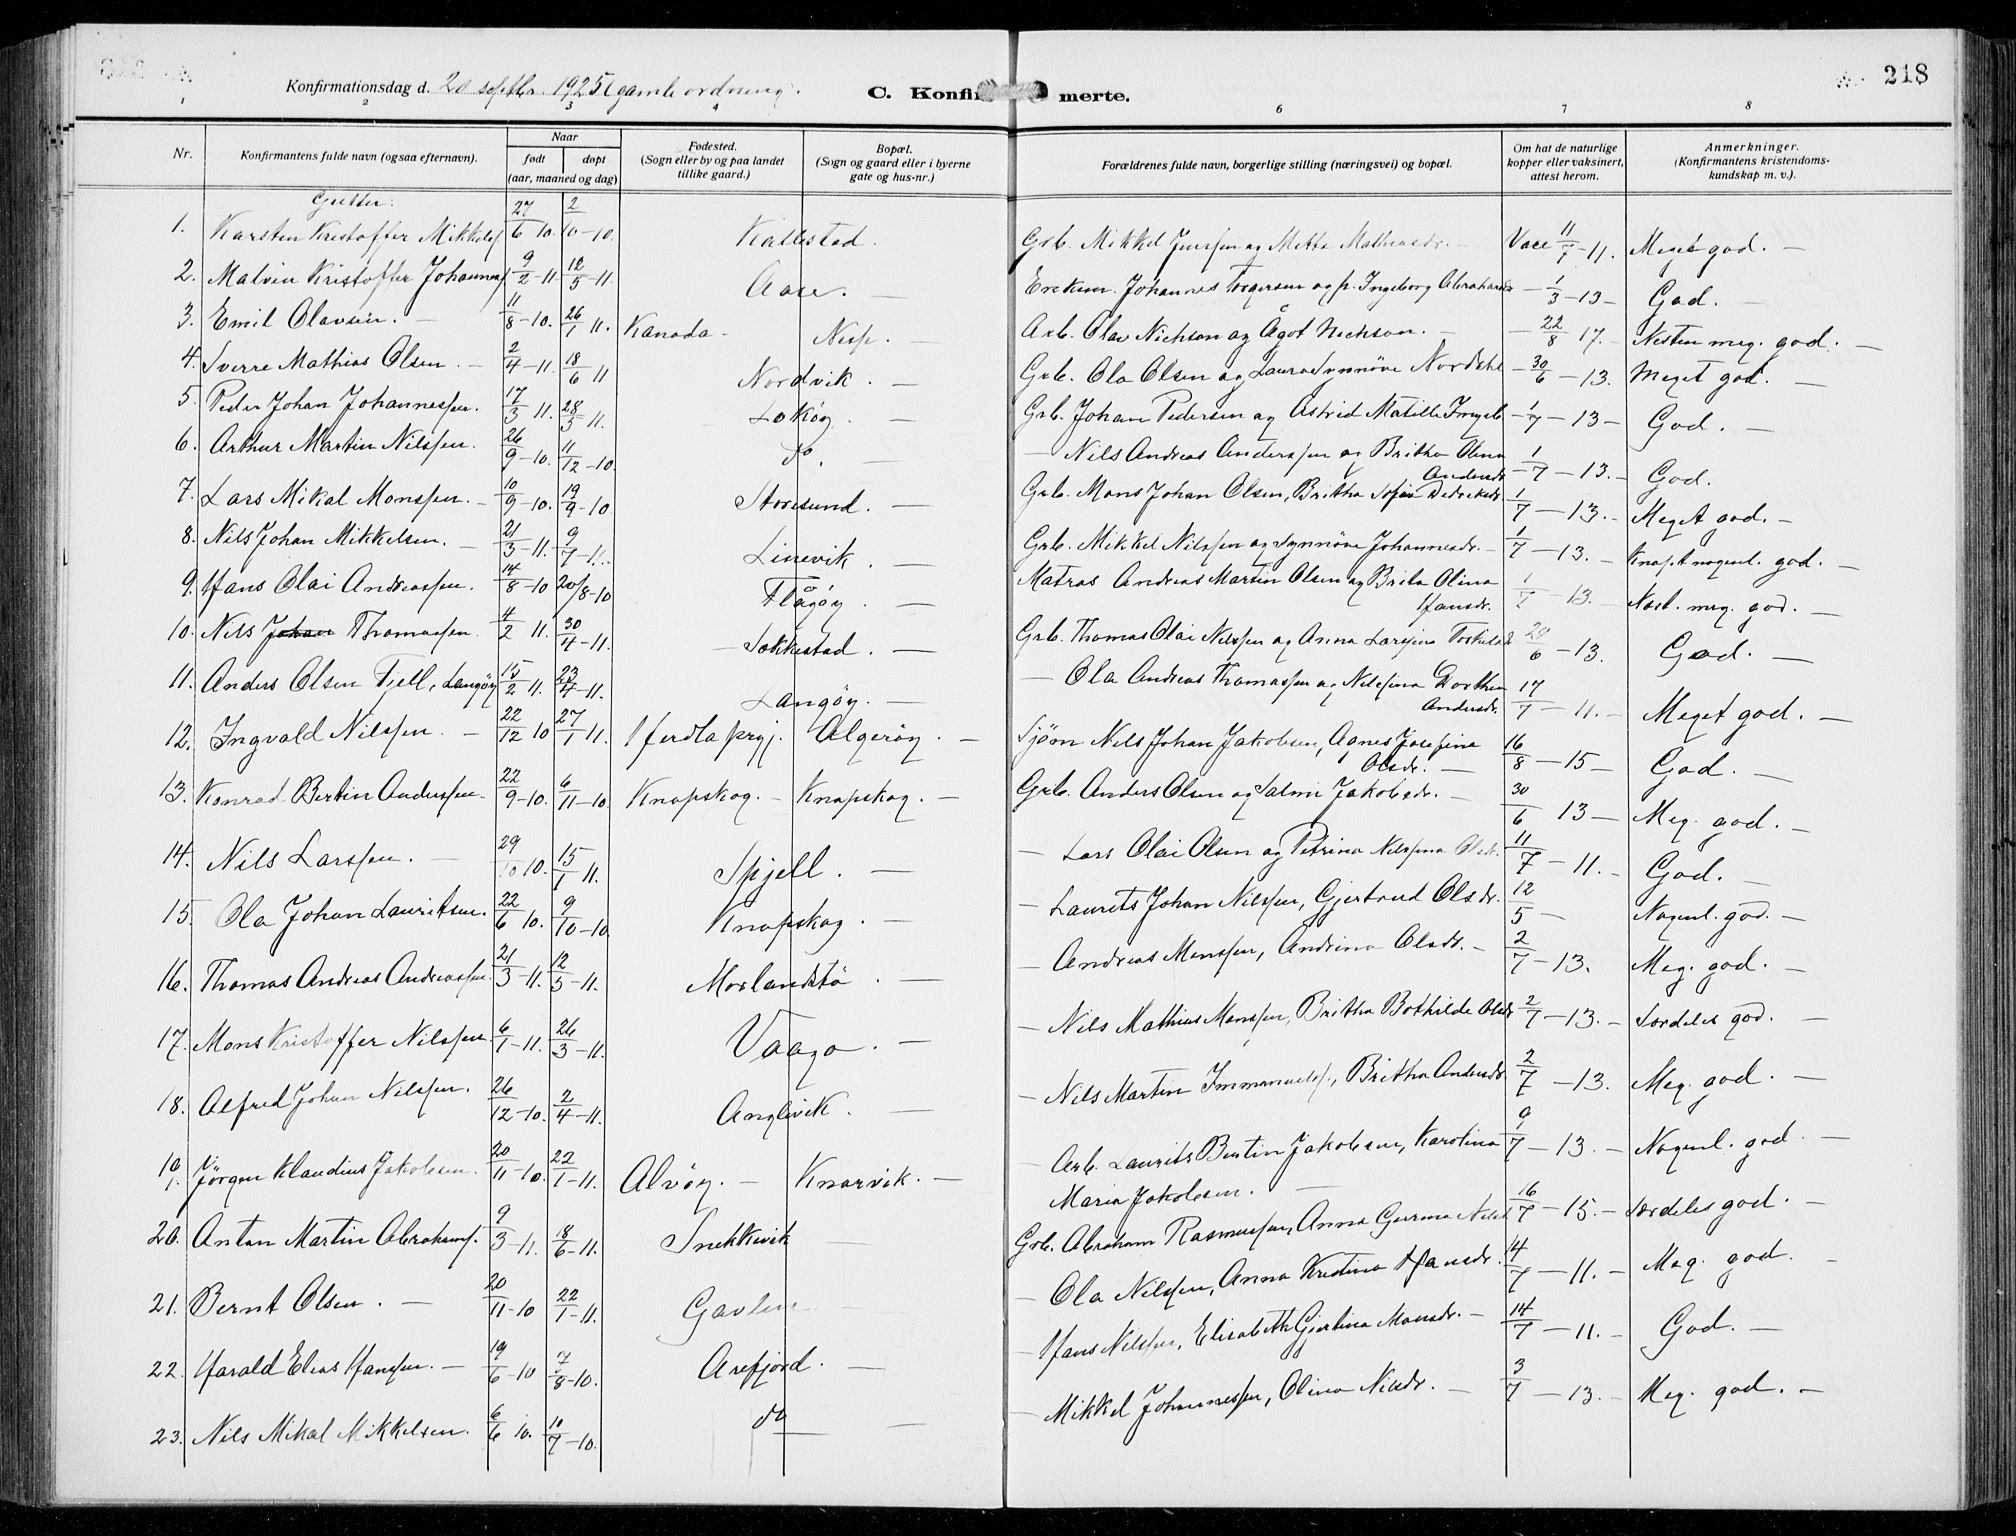 218
Konfirmationsdag d. 20 septbr. 1925 (gamle ordning).
C. Konfirmerte.
1 2 3 4 6 7 8
Nr.
Konfirmantens fulde navn (ogsaa efternavn).
Naar
født
døpt
(aar, maaned og dag)
Fødested.
(Sogn eller by og paa landet
tillike gaard.)
Bopæl.
(Sogn og gaard eller i byerne
gate og hus-nr.)
Forældrenes fulde navn, borgerlige stilling (næringsvei) og bopæl.
Om hat de naturlige
kopper eller vaksinert,
attest herom.
Anmerkninger.
(Konfirmantens kristendoms-
kundskap m. v.).
Gutter:
1. Karsten Kristoffer Mikkels. 27/6 10. 2/10-10. Kallestad. Grb. Mikkel Jenssen og Mette Mathiasdr. Vacc 11/7-11. Meget god.
2. Malvin Kristoffer Johannes. 9/2-11. 12/5-11. Aase. Johannes Torgersen og h. Ingeborg Abrahamsdr - 1/3-13- God.
3. Emil Olavsen. 11/8-10. 26/1 11. Kanada - Nesp. Arb. Olav Nickson og Ågot Nickson. - 22/8 17. - Nesten meg. god.
4. Sverre Mathias Olsen. 2/4-11. 18/6 11 Nordvik. Grb. Ola Olsen og Laura Synnöve Nordahl - 30/6-13. Meget god.
5. Peder Johan Johannessen. 17/3 11. 28/3-11. Lokøy. Grb. Johan Pedersen og Astrid Matille Ingeb. - 1/7-13- God.
6. Arthur Martin Nilssen. 26/9-10. 11/12-10. do. - Nils Andreas Anderssen og Britha Olina Andersdr. 1/7-13.- God.
7. Lars Mikal Monssen. 10/9-10. 19/9-10 Storesund. Grb. Mons Johan Olsen, Britha Sofie Dedriksdr. 1/7-13.- Meget god.
8. Nils Johan Mikkelsen. 21/3-11. 9/7-11. Linevik. Grb. Mikkel Nilssen og Synnöve Johannesdr. 1/7-13. Knapt nogenl. god.
9. Hans Olai Andreassen. 14/8-10 20/8-10 Flågøy. Matros Andreas Martin Olsen og Brita Olina Hansdr. 1/7-13. Næst. meg. god.
10. Nils Johan Thomassen. 4/2 11. 30/4-11. Søkkestad. Grb. Thomas Olai Nilssen og Anna Larsina Torkelsd 20/6-13. God.
11. Anders Olsen Fjell, Langøy 15/2 11. 23/4-11. Langøy. - Ola Andreas Thomassen og Nilssina Dorthea Andersdr. 17/7-11.- Meget god.
12. Ingvald Nilssen. 22/12 10 27/1 11. Herdla prgj. Algerøy. Sjöm Nils Johan Jakobsen, Agnes Josefina Olsdr. 16/8-15- God.
13. Konrad Bertin Anderssen. 22/9-10. 6/11-10 Knapskog. - Knapskog. Grb. Anders Olsen og Salmi Jakobsdr. 30/6 13- Meg. god.
14. Nils Larssen. 29/10 10. 15/1 11. Spjell. - Lars Olai Olsen og Petrina Nilssina Olsdr. 11/7-11.- God.
15. Ola Johan Lauritsen. 22/6 10. 9/10-10. Knapskog. - Laurits Johan Nilssen, Gjertrud Olsdr. 12/5- Nogenl. god.
16. Thomas Andreas Andreassen. 21/3-11. 12/5-11. Morlandstø. - Andreas Monssen, Andrina Olsdr. 2/7-13. Meg. god.
17. Mons Kristoffer Nilssen. 6/1-11. 26/3-11. Vaage. - Nils Mathias Monssen, Britha Bothilde Olsdr 2/7-13.- Særdeles god.
18. Alfred Johan Nilssen. 26/12-10. 2/4-11. Anglevik. - Nils Martin Immanuels., Britha Andersdr. 2/7-13. Meg. god.
19. Jörgen Klaudius Jakobsen. 20/11-10. 22/1-11. Alvøy. - Knarvik. - Arb. Laurits Bertin Jakobsen, Karolina Maria Jakobsen. 9/7-13.- Nogenl. god
20. Anton Martin Abrahams. 9/3-11. 18/6-11. Snekkevik Grb. Abraham Rasmussen, Anna Gurina Nilsd 16/7-15.- Særdeles god.
21. Bernt Olsen. 20/11-10 22/1-11. Gavlen - Ola Nilssen, Anna Kristina Hansdr. 14/7-11.- Meg. god.
22. Harald Elias Hanssen. 19/6-10 7/8-10. Arefjord. - Hans Nilssen, Elisabeth Gjertina Monsdr. 14/7-11.- God.
23. Nils Mikal Mikkelsen. 6/6 10. 10/7-10. do Mikkel Johannessen, Olina Nilsdr. 3/7-13.- Meg. god.